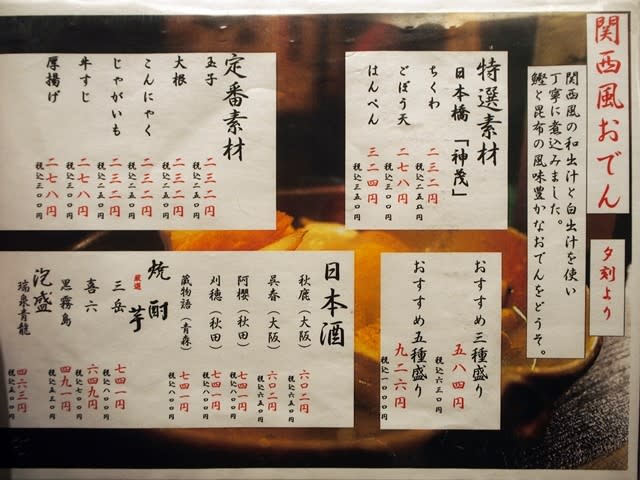 関西風おでん
夕刻より
関西風の和出汁と白出汁を使い
丁寧に煮込みました。
鰹と昆布の風味豊かなおでんをどうぞ。
特選素材
日本橋「神茂」
ちくわ 二三二円 税込二五〇円
ごぼう天 二七八円 税込三〇〇円
はんぺん 三二四円 税込三五〇円
定番素材
玉子 二三二円 税込二五〇円
大根 二三二円 税込二五〇円
こんにゃく 二三二円 税込二五〇円
じゃがいも 二三二円 税込二五〇円
牛すじ 二七八円 税込三〇〇円
厚揚げ 二七八円 税込三〇〇円
おすすめ三種盛り 五八四円 税込六三〇円
おすすめ五種盛り 九二六円 税込一〇〇〇円
日本酒
秋鹿(大阪) 六〇二円 税込六五〇円
呉春(大阪) 六〇二円 税込六五〇円
阿櫻(秋田) 七四一円 税込八〇〇円
刈穂(秋田) 七四一円 税込八〇〇円
蔵物語(青森) 七四一円 税込八〇〇円
焼酎 芋
厳選
三岳 七四一円 税込八〇〇円
喜六 六四九円 税込七〇〇円
黒霧島 四九一円
泡盛
瑞泉青龍 四六三円 税込五〇〇円